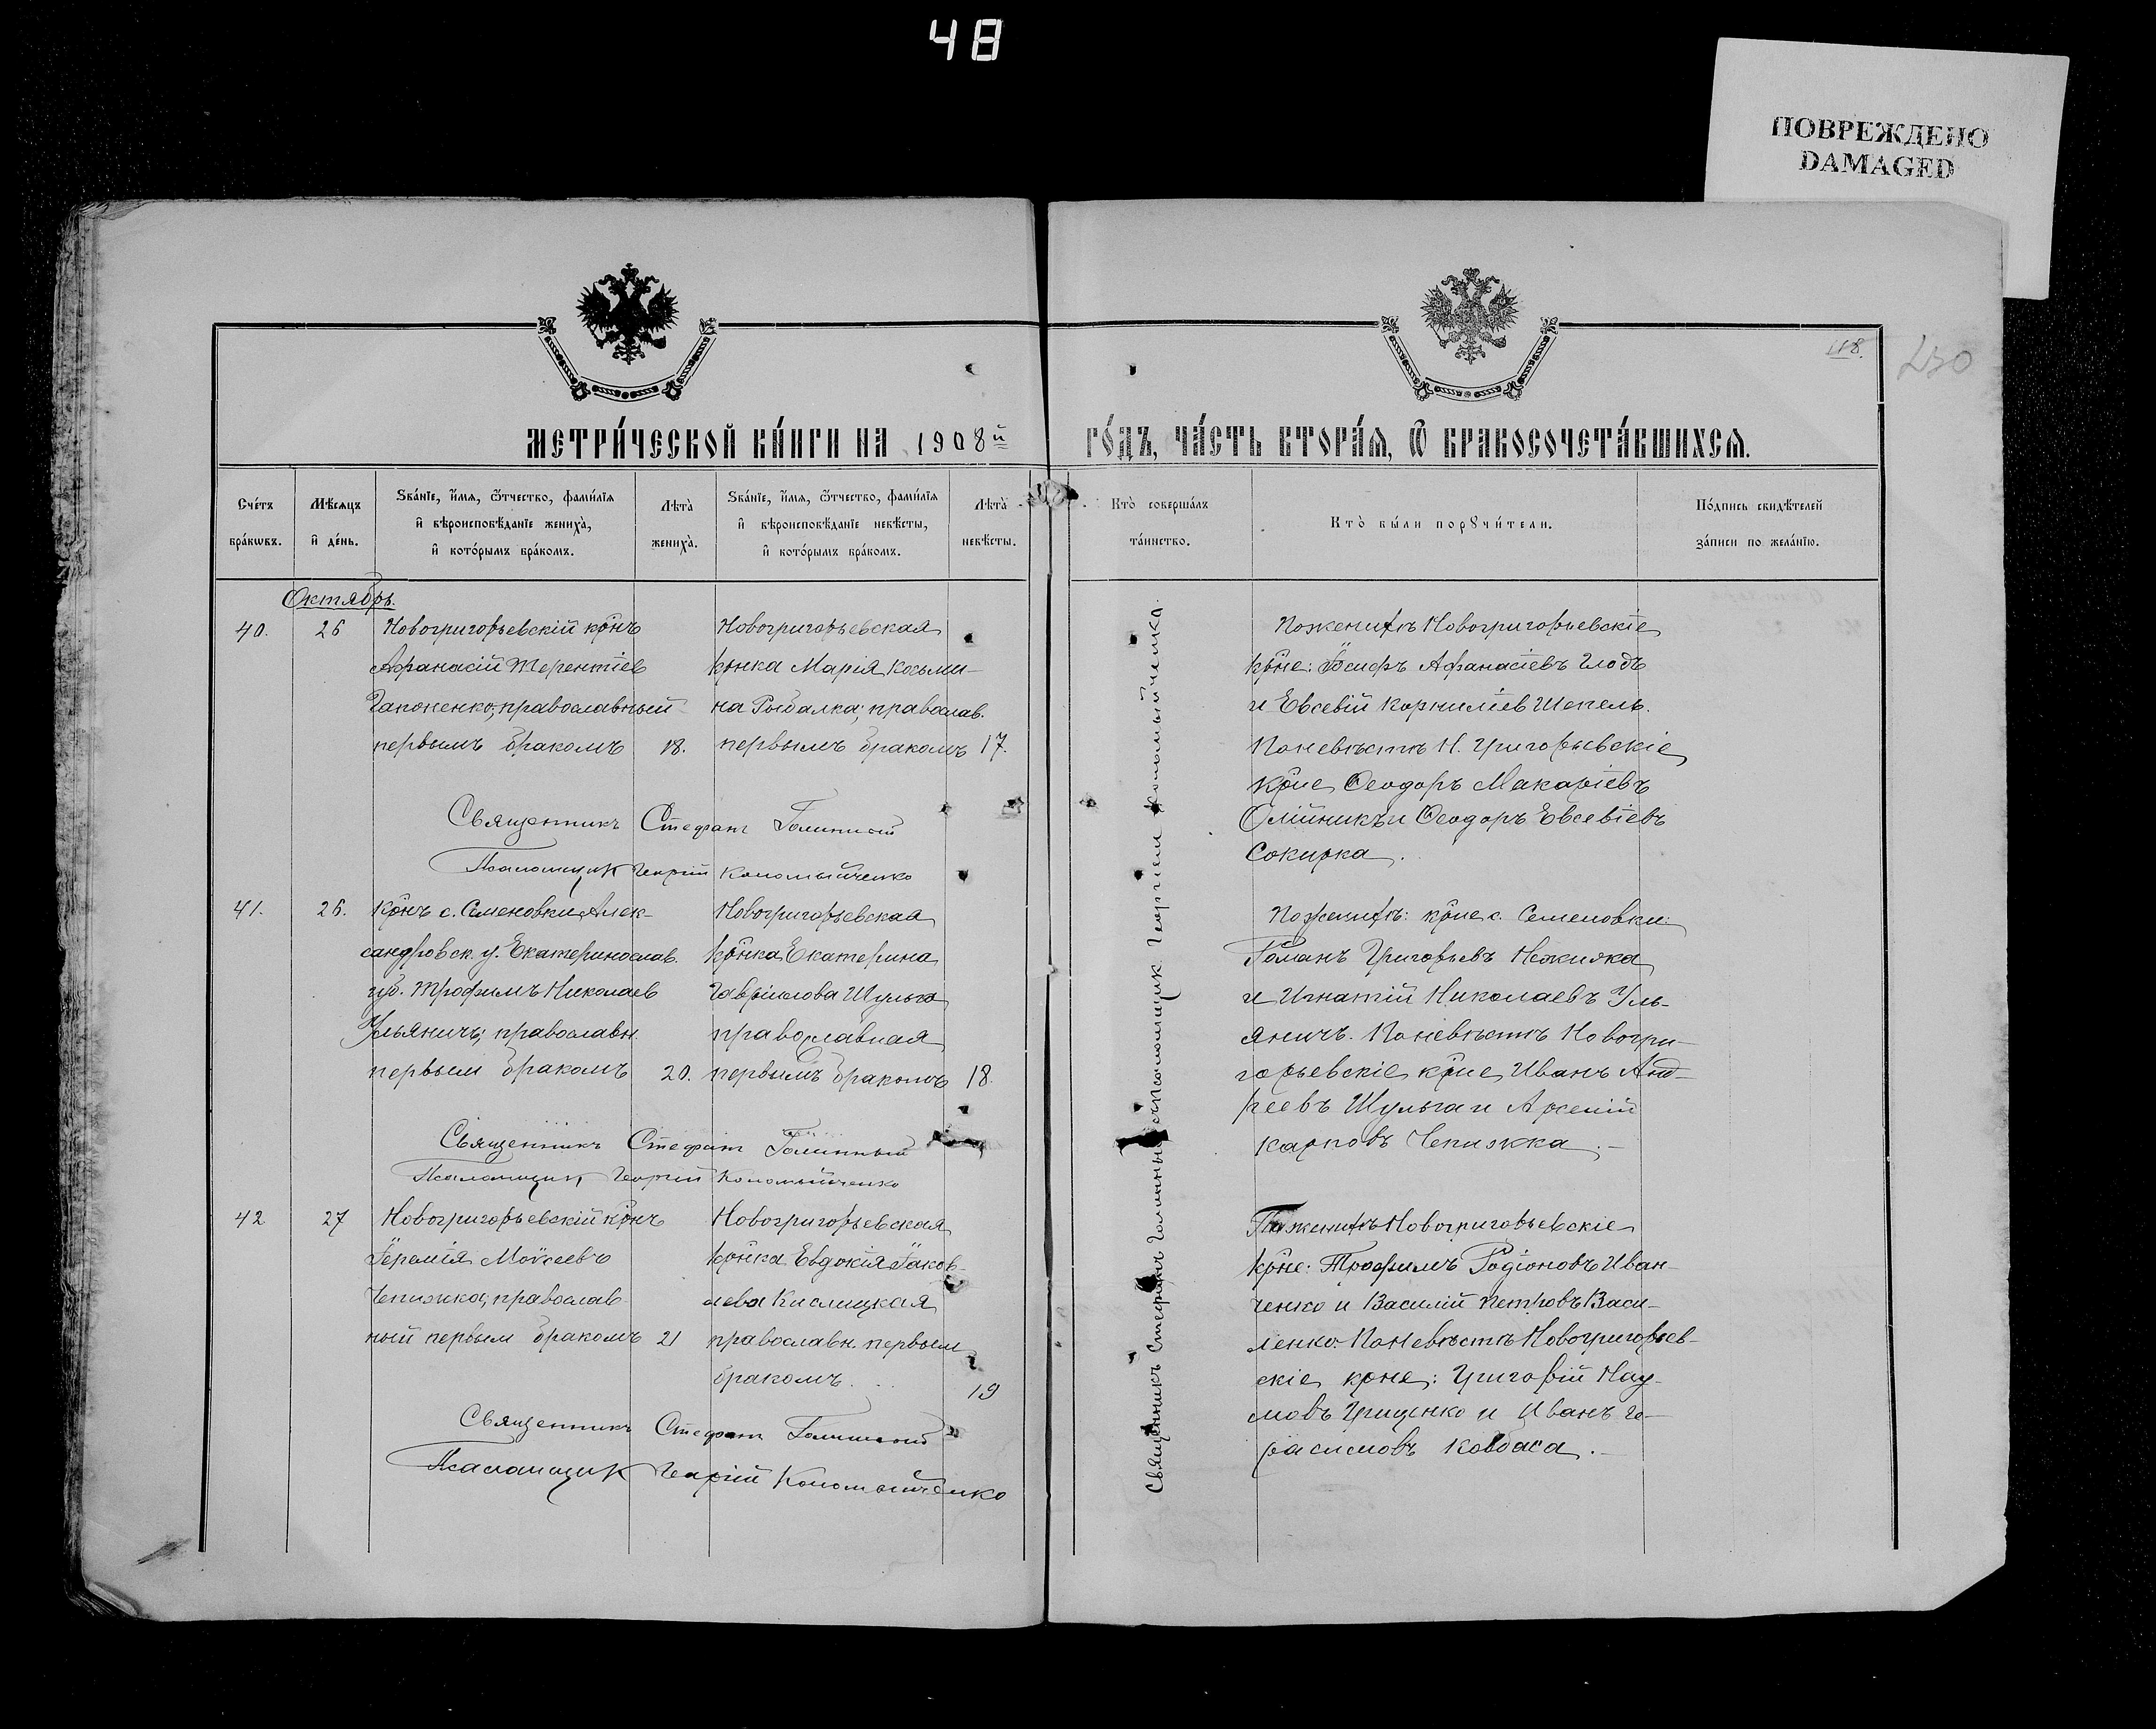 48
ПОВРЕЖДЕНО
DAMAGED
118.
230
МЕТРИ́ЧЕСКОЙ КНИ́ГИ НА 1908й ГО́ДЪ, ЧА́СТЬ ВТОРА́Я, Ѡ БРАКОСОЧЕТА́ВШИХСЯ.
Сче́тъ бра́кѡвъ.
Мѣ́сяцъ и҆ де́нь.
Ѕва́нїе, и҆́мя, ѻ҆́тчество, фамилі́я и҆ вѣроисповѣ́данїе жениха̀, и҆ кото́рымъ бра́комъ.
Лѣта̀ жениха̀.
Ѕва́нїе, и҆́мя, ѻ҆́тчество, фамилі́я и҆ вѣроисповѣ́данїе невѣ́сты, и҆ кото́рымъ бра́комъ.
Лѣта̀ невѣ́сты.
Кто̀ соверша́лъ та́инство.
Кто̀ бы́ли порꙋчи́тели.
По́дпись свидѣ́телей за́писи по жела́нїю.
Октябрь.
40.
26
Новогригорьевскій крнъ
Афанасій Терентіев
Гапоненко, православный
первымъ бракомъ
18.
Новогригорьевская
крнка Марія Козьми-
на Рыбалка; православ.
первымъ бракомъ
17.
Поженихѣ Новогригорьевскіе
крне: Іосифъ Афанасіевъ Глодъ
и Евсевій Корниліев Шепель.
Поневѣстѣ Н. Григорьевскіе
крне Ѳеодоръ Макаріевъ
Олійникъ и Ѳеодоръ Евсевіевъ
Сокирка.
Священникъ Стефанъ Голинный
Псаломщик Георгій Коломыйченко
41.
26.
Крнъ с. Семеновки Алек-
сандровск. у. Екатеринослав.
губ. Трофимъ Николаев
Ульяничъ; православн.
первым бракомъ
20.
Новогригорьевская
крнка Екатерина
Гавріилова Шульга
православная
первымъ бракомъ
18.
Поженихѣ: крне с. Семеновки:
Романъ Григорьевъ
и Игнатій Николаевъ Уль-
яничъ. Поневѣстѣ Новогри-
горьевскіе крне Иванъ Анд-
реевъ Шульга и Арсеній
Карповъ Чепижка.-
Священникъ Стефанъ Голинный
Псаломщик Георгій Коломыйченко
42
27
Новогригорьевскій крнъ
Іеремія Моѵсеевъ
Чепижка; православ-
ный первым бракомъ
21
Новогригорьевская
крнка Евдокія Іаков-
лева Кислицкая
православн. первым
бракомъ.
19
Поженихѣ Новогригорьевскіе
крне: Трофимъ Родіоновъ Иван-
ченко и Василій Петровъ Васи-
ленко. Поневѣстѣ Новогригорьев-
скіе крне: Григорій Нау-
мовъ Грищенко и Иванъ Ге-
расимовъ Колбаса.-
Священникъ Стефанъ Голинный
Псаломщик Георгій Коломыйченко
Священникъ Стефанъ Голинный съ псаломщик Георгіем Коломыйченко.